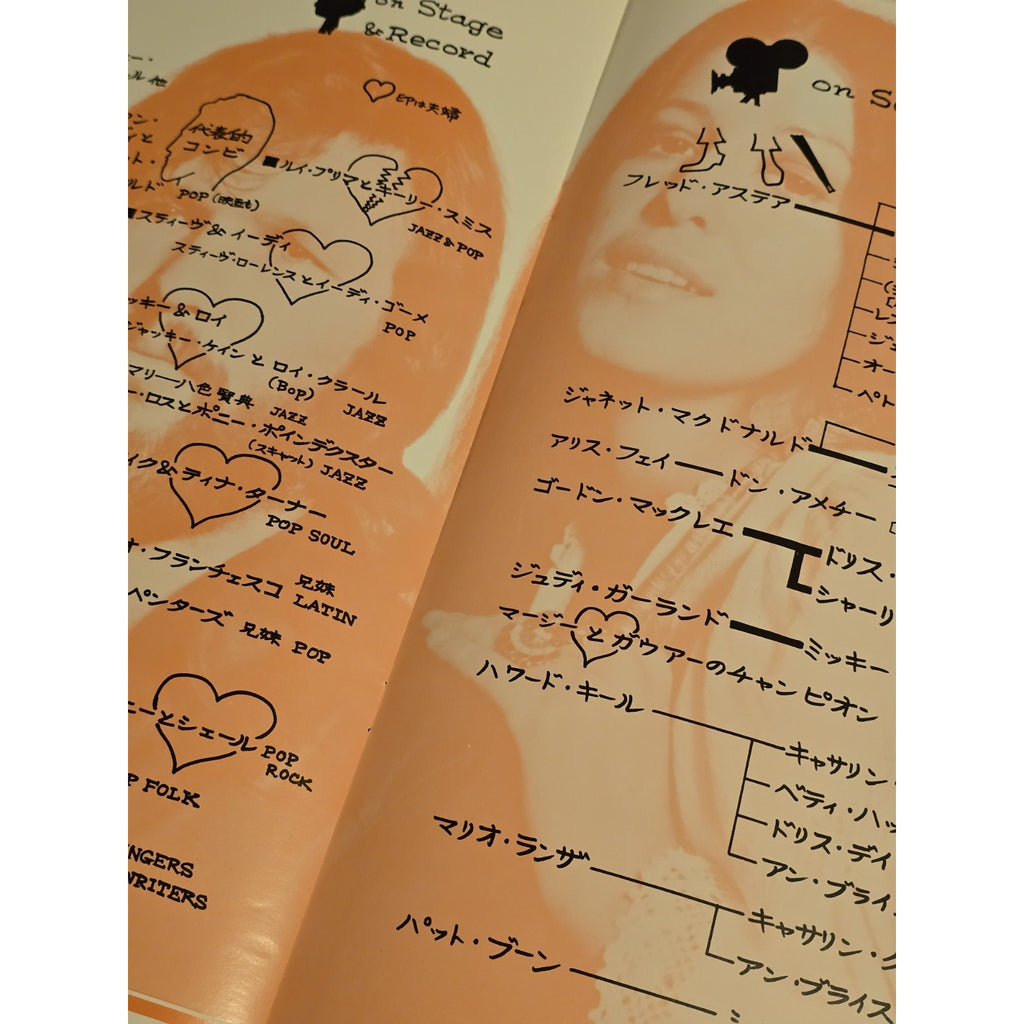 on Stage
& Record
ル他
EPは夫婦
代表的
コンビ
■ルイ・プリマとキーリー・スミス
JAZZ & POP
POP (映画も)
■スティーヴ&イーディ
スティーヴ・ローレンスとイーディ・ゴーメ
POP
ッキー&ロイ
ジャッキー・ケインとロイ・クラール
(BOP) JAZZ
マリー・八色賢典 JAZZ
ー・ロスとポニー・ポインデクスター
(スキャット) JAZZ
イク&ティナ・ターナー
POP SOUL
オ・フランチェスコ 兄妹
LATIN
ペンターズ 兄妹 POP
ニーとシェール POP
ROCK
P FOLK
NGERS
WRITERS
on Sc
フレッド・アステア
レス
ジュ
オー
ペト
ジャネット・マクドナルド
アリス・フェイ ドン・アメチー
ゴードン・マックレエ ドリス・
シャーリ
ジュディ・ガーランド ミッキー
マージーとガウアーのチャンピオン
ハワード・キール
キャサリン・
ベティ・ハッ
ドリス・デイ
アン・ブライ
マリオ・ランザ
キャサリン・グ
アン・ブライス
パット・ブーン